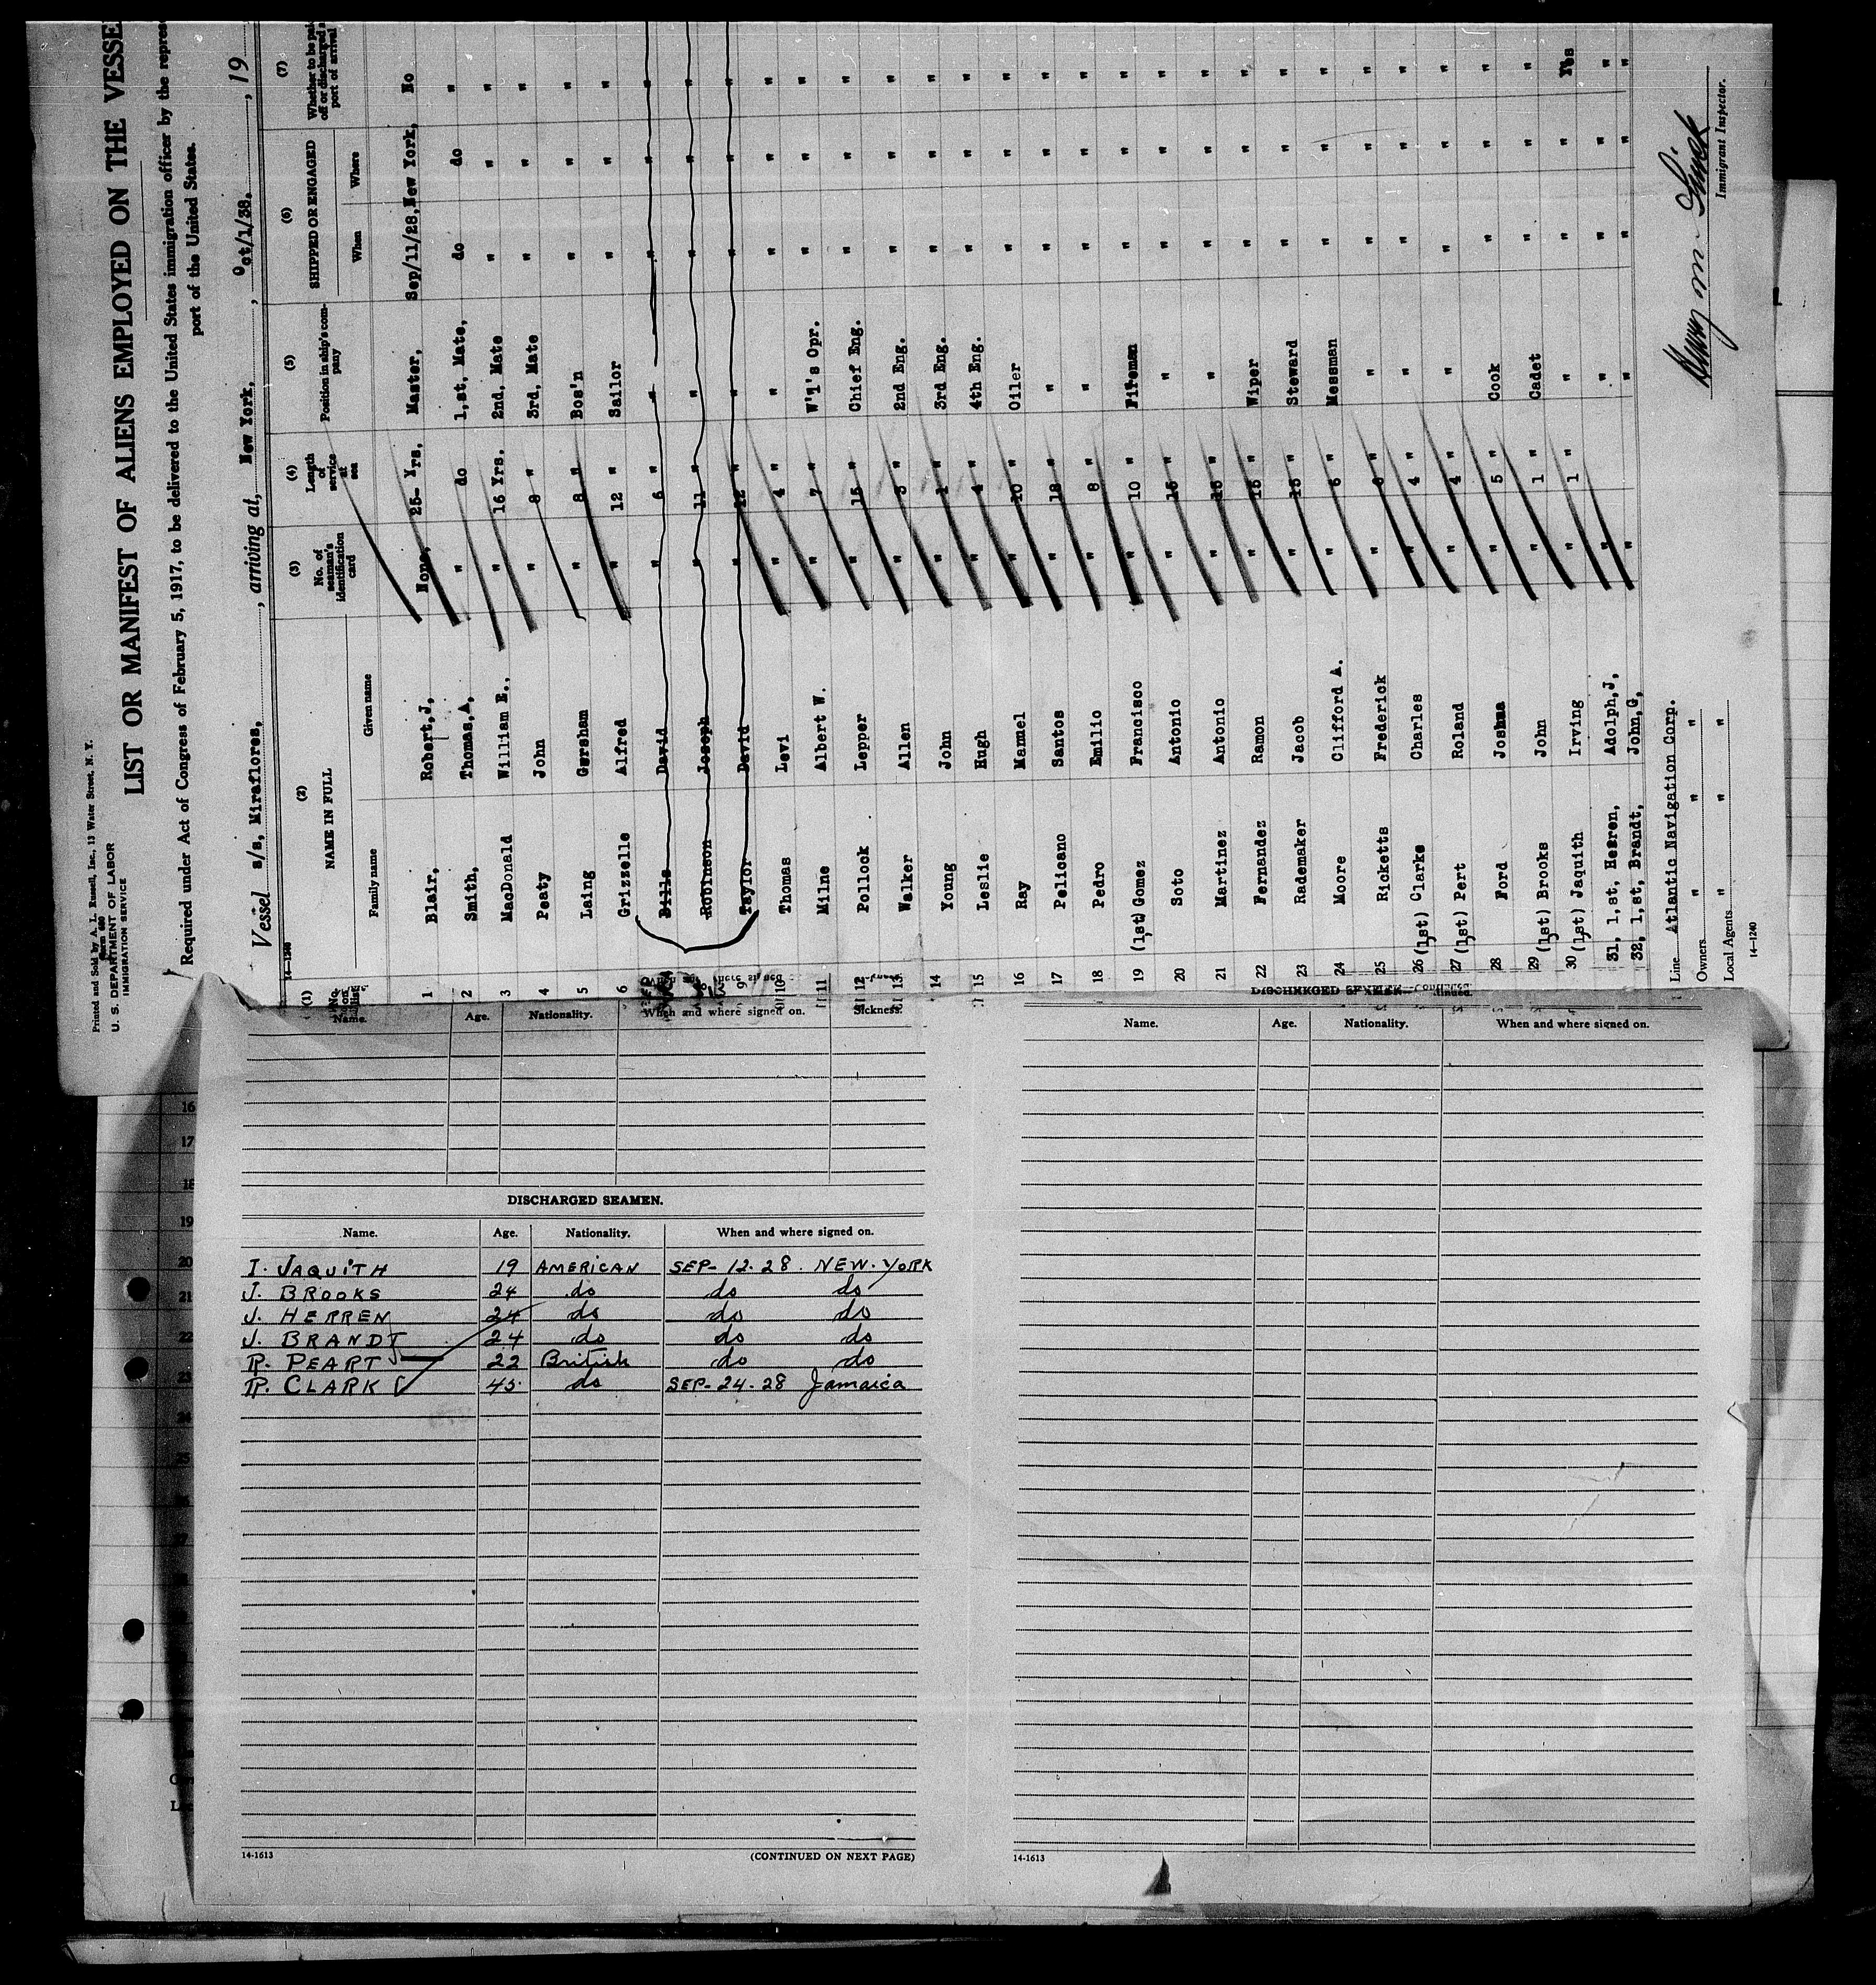 Printed and Sold by A. L. Russell, Inc., 13 Water Street, N. Y.
Form 680
U. S. DEPARTMENT OF LABOR
IMMIGRATION SERVICE
LIST OR MANIFEST OF ALIENS EMPLOYED ON THE VESSE
Required under Act of Congress of February 5, 1917, to be delivered to the United States immigration officer by the repres
port of the United States.
Vessel s/s, Miraflores, , arriving at, New York, , Oct/1/38, , 19
14-1240
(1) (2) (3) (4) (5) (6) (7)
No. on list NAME IN FULL No. of seaman's identification card Length of service at sea Position in ship's company SHIPPED OR ENGAGED Whether to be paid off or discharged at port of arrival
Family name Given name When Where
1 Blair, Robert,J, None, 25- Yrs, Master, Sep/11/28, New York, No
2 Smith, Thomas,A, " do 1,st, Mate, do do "
3 MacDonald William E., " 16 Yrs. 2nd, Mate " " "
4 Peaty John " 8 " 3rd, Mate " " "
5 Laing Gersham " 8 " Bos'n " " "
6 Grizzelle Alfred " 12 " Sailor " " "
Bills David " 6 " " " " "
Robinson Joseph " 11 " " " " "
9 Taylor David " 12 " " " " "
10 Thomas Levi " 4 " " " " "
11 Milne Albert W. " 7 " W'l's Opr. " " "
12 Pollock Lepper " 15 " Chief Eng. " " "
13 Walker Allen " 3 " 2nd Eng. " " "
14 Young John " 1 " 3rd Eng. " " "
15 Leslie Hugh " 4 " 4th Eng. " " "
16 Ray Manuel " 10 " Oiler " " "
17 Pelicano Santos " 18 " " " " "
18 Pedro Emilio " 8 " " " " "
19 (1st) Gomez Francisco " 10 " Fireman " " "
20 Soto Antonio " 15 " " " " "
21 Martinez Antonio " 15 " " " " "
22 Fernandez Ramon " 15 " Wiper " " "
23 Rademaker Jacob " 15 " Steward " " "
24 Moore Clifford A. " 6 " Messman " " "
25 Ricketts Frederick " 6 " " " " "
26 (1st) Clarke Charles " 4 " " " " "
27 (1st) Pert Roland " 4 " " " " "
28 Ford Joshua " 5 " Cook " " "
29 (1st) Brooks John " 1 " Cadet " " "
30 (1st) Jaquith Irving " 1 " " " " Yes
31, 1,st, Herren, Adolph,J, " " " " "
32, 1,st, Brandt, John,G, " " " " "
Line Atlantic Navigation Corp.
Owners " " "
Local Agents " " "
14-1240
Immigrant Inspector.
Name. Age. Nationality. When and where signed on. Sickness.
DISCHARGED SEAMEN.
Name. Age. Nationality. When and where signed on.
I. JAQUITH 19 AMERICAN SEP- 12. 28. NEW. YORK
J. BROOKS 24 do do do
J. HERREN 24 do do do
J. BRANDT 24 do do do
R. PEART 22 British do do
R. CLARK 45 do SEP- 24- 28 Jamaica
14-1613
(CONTINUED ON NEXT PAGE)
DISCHARGED SEAMEN—Continued.
Name. Age. Nationality. When and where signed on.
14-1613
16
17
18
19
20
21
22
23
24
25